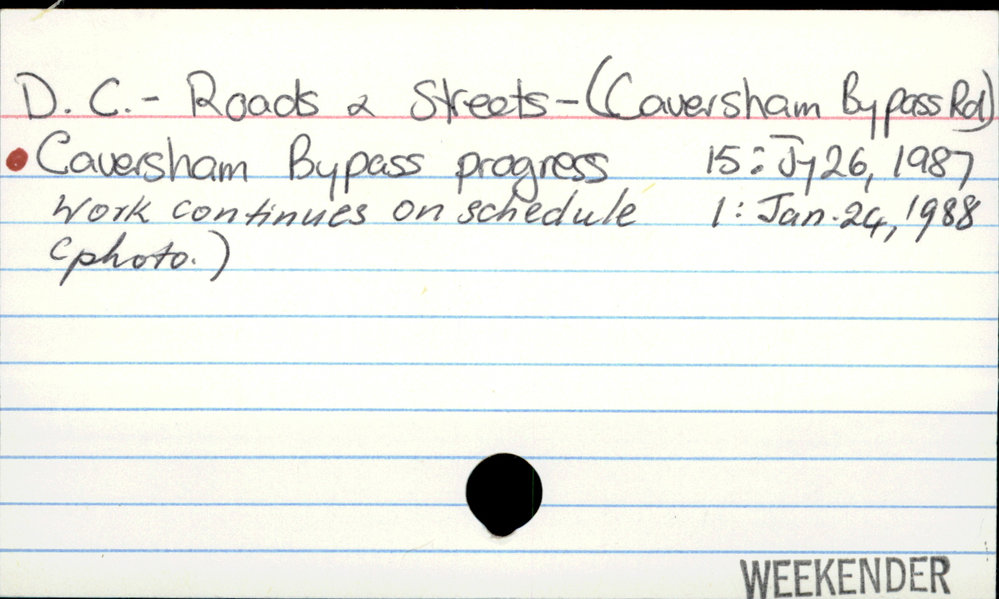 D. C. - Roads & Streets - (Caversham Bypass Rd)
Caversham Bypass progress 15: Jy 26, 1987
Work continues on schedule 1: Jan. 24, 1988
(photo.)
WEEKENDER